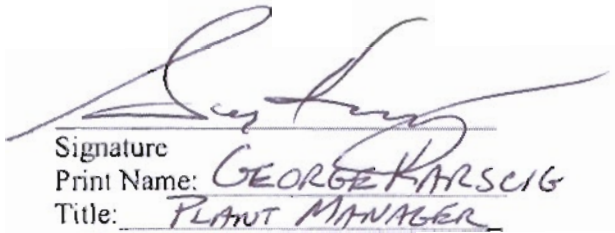 Signature
Print Name: GEORGE KARSCIG
Title: PLANT MANAGER